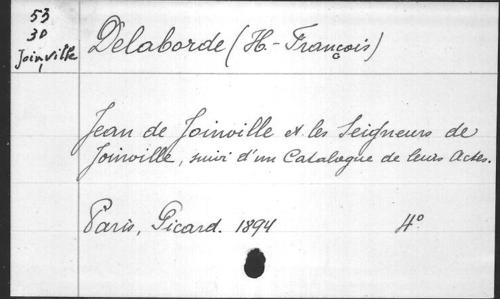 53
3D
Joinville
Delaborde (H.-François)
Jean de Joinville et les Seigneurs de
Joinville, suivi d'un Catalogue de leurs Actes.
Paris, Picard. 1894 4°